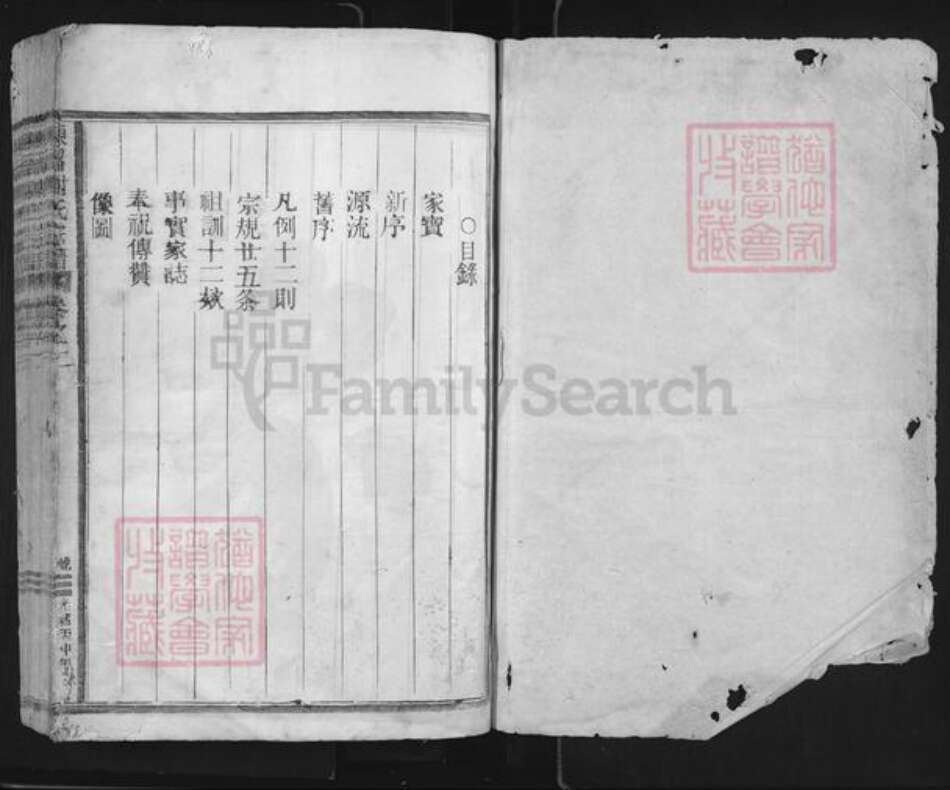 ○目錄
家寶
新序
源流
舊序
凡例十二則
宗規廿五条
祖訓十二欵
事實家誌
奉祝傳贊
像圖
猶他家
譜學會
收藏
猶他家
譜學會
收藏
FamilySearch